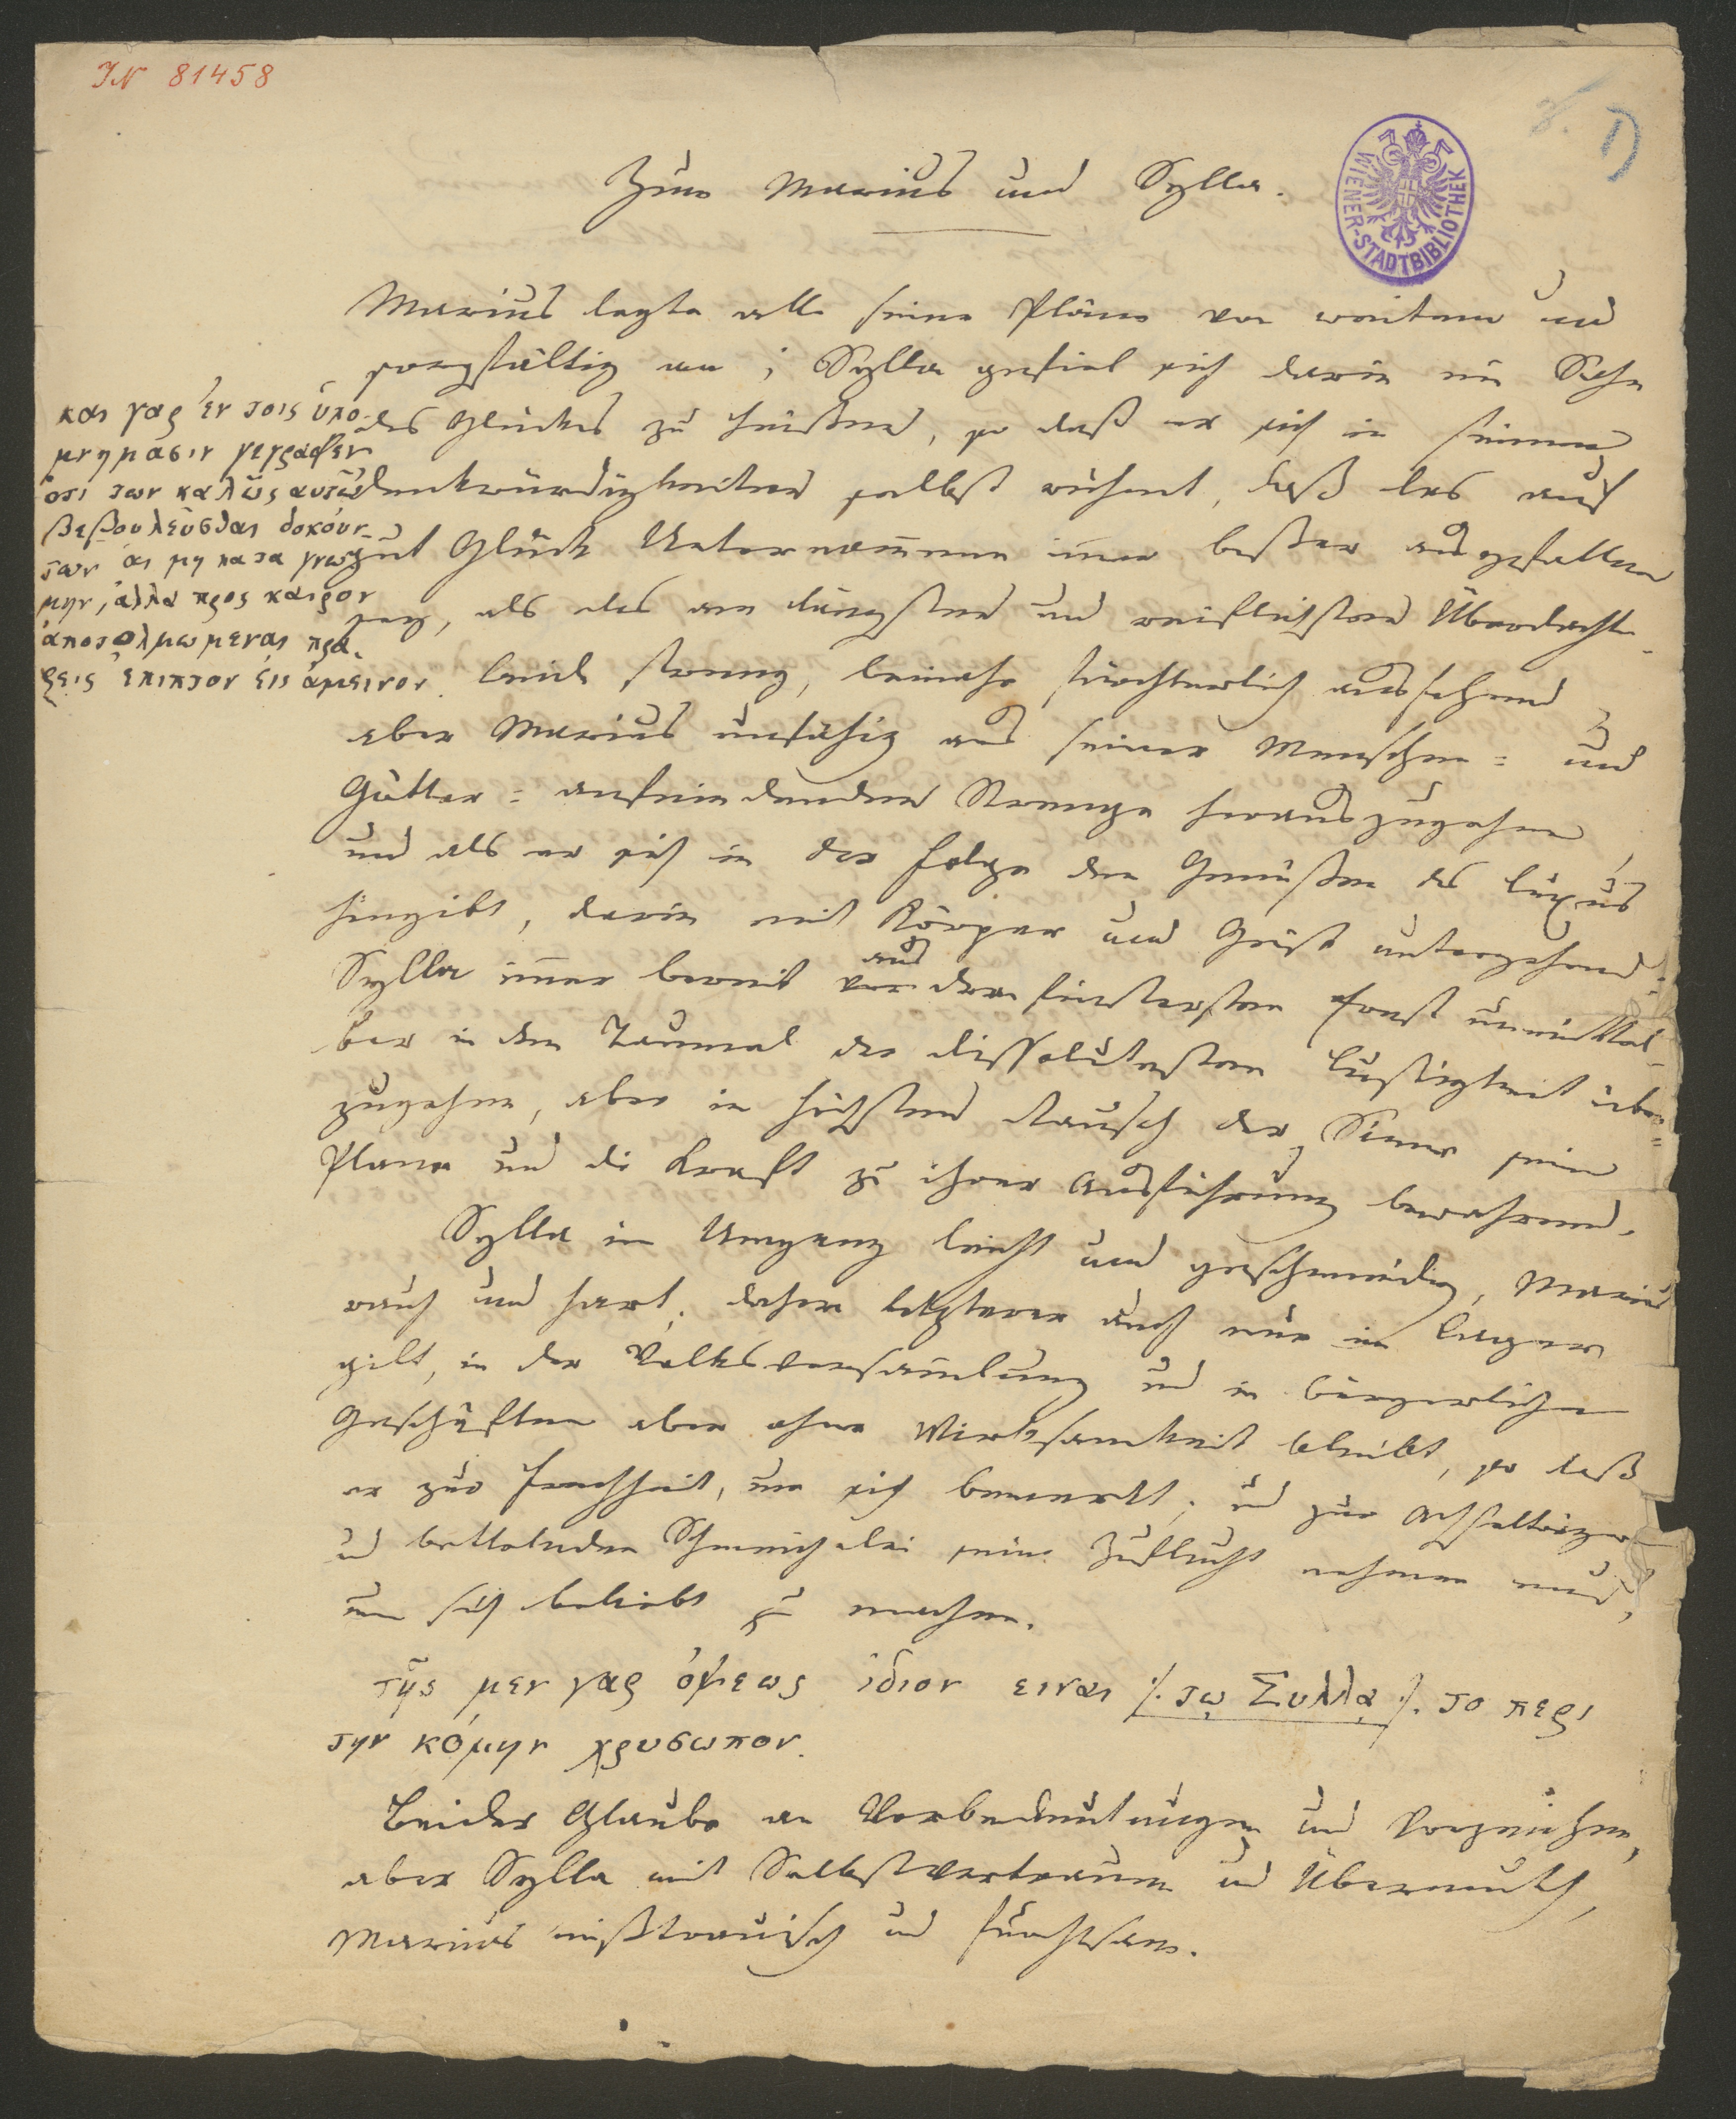 IN 81458
1)
WIENER-STADTBIBLIOTHEK
Zum Marius und Sylla.
Marius legte alle seine Pläne von weitem und
sorgfältig an; Sylla gefiel sich darin ein Sohn
des Glückes zu heißen, so daß er sich in seinen
Denkwürdigkeiten selbst rühmt, daß das auf
gut Glück Unternommene immer besser ausgefallen
sey, als das am längsten und reiflichsten Überdachte.
και γαρ ἐν τοις ὑπο-
μνημασιν γεγραφεν
ὁτι των καλῶς αυτῷ
βεβουλεῦσθαι δοκούν-
των ἁι μη κατα γνω-
μην, ἀλλα προς καιρον
ἀποτολμωμεναι πρα-
ξεις ἐπιπτον ἐις ἀμεινον.
Beide streng, beinahe fürchterlich aussehend,
aber Marius unfähig aus seiner Menschen= und
Götter= anfeindenden Strenge herauszugehen,
und als er sich in der Folge den Genüßen des Luxus
hingibt, darin mit Körper und Geist untergehend;
Sylla immer bereit von der finstersten
aus
Ernst unmittel-
bar in den Taumel der dissolutesten Lustigkeit über=
zugehen, aber im höchsten Rausch der Sinne seine
Plane und die Kraft zu ihrer Ausführung bewahrend.
Sylla im Umgang leicht und geschmeidig, Marius
rauh und hart; daher letzterer auch nur im Lager
gilt, in der Volksversammlung und in bürgerlichen
Geschäften aber ohne Wirksamkeit bleibt, so daß
er zur Frechheit, um sich bemerkt, und zur Achselträger
und bettelnden Schmeichelei seine Zuflucht nehmen muß,
um sich beliebt zu machen.
τῆς μεν γαρ ὀψεως ἰδιον ειναι ⁒ τῳ Συλλᾳ ⁒ το περι
την κόμην χρυσωπον.
Beider Glaube an Vorbedeutungen und Vorzeichen,
aber Sylla mit Selbstvertrauen und Übermuth,
Marius mißtrauisch und furchtsam.